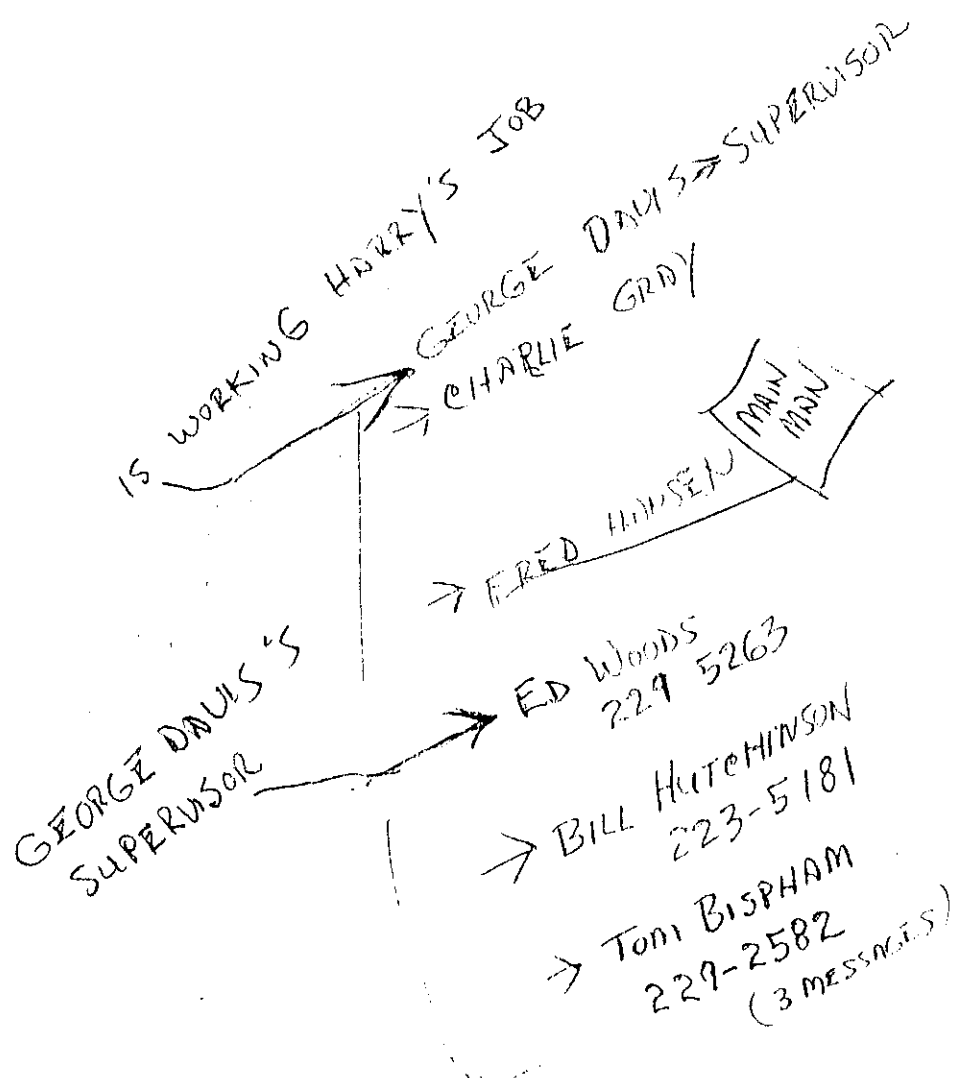 IS WORKING HARRY'S JOB
GEORGE DAVIS → SUPERVISOR
→ CHARLIE GRAY
MAIN
MAN
→ FRED HANSEN
GEORGE DAVIS'S
SUPERVISOR
ED WOODS
229 5263
→ BILL HUTCHINSON
223-5181
→ TOM BISPHAM
229-2582
(3 MESSAGES)